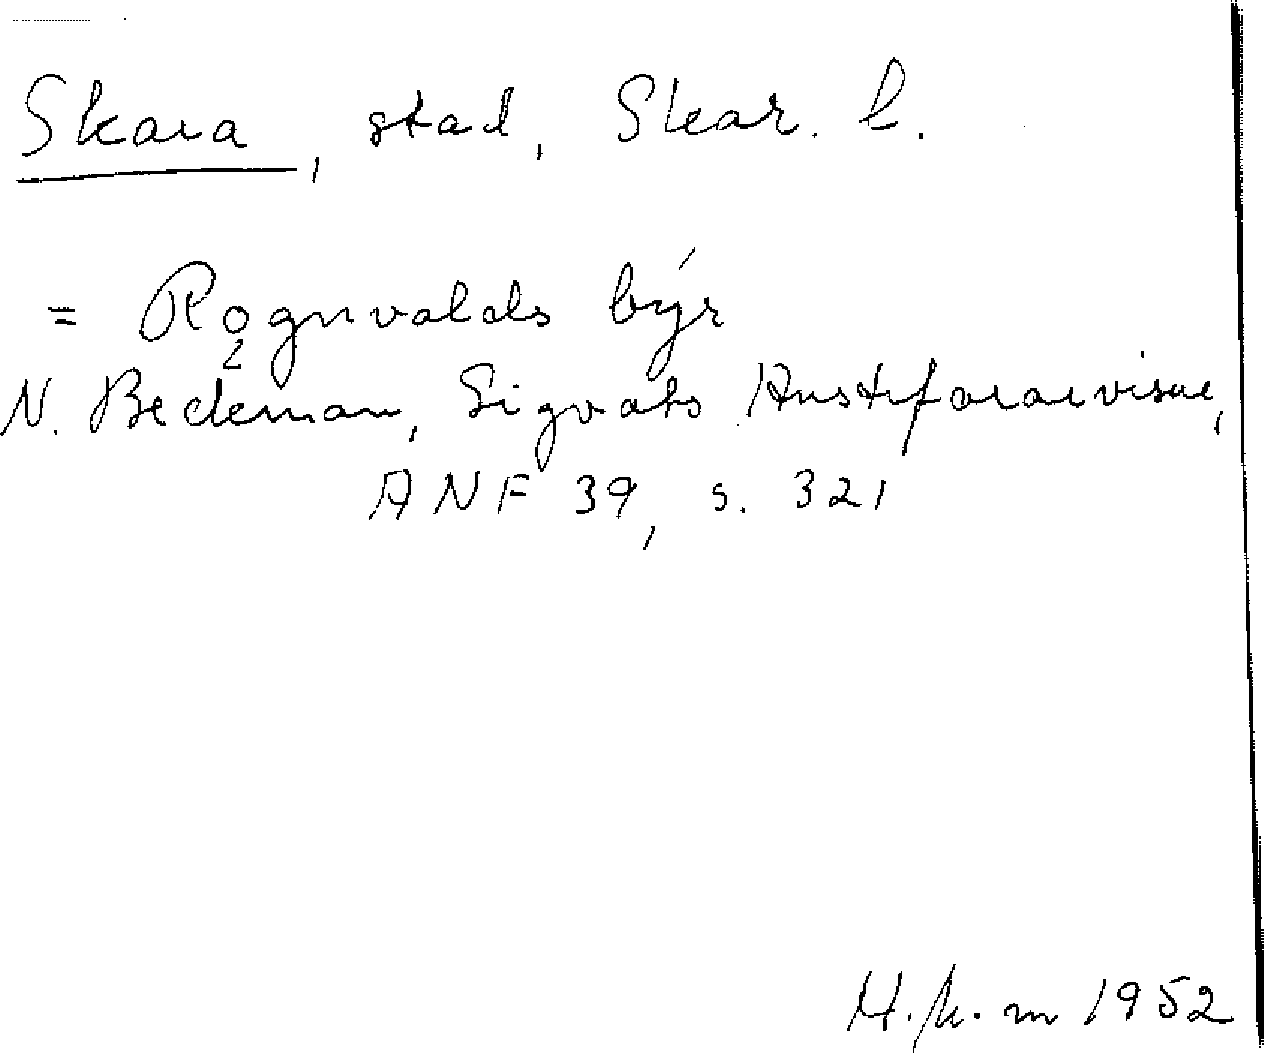 Skara, stad, Skar. l.
= Rǫgnvalds býr
N. Beckman, Sigvats Austrfararvisur,
ANF 39, s. 321
1952